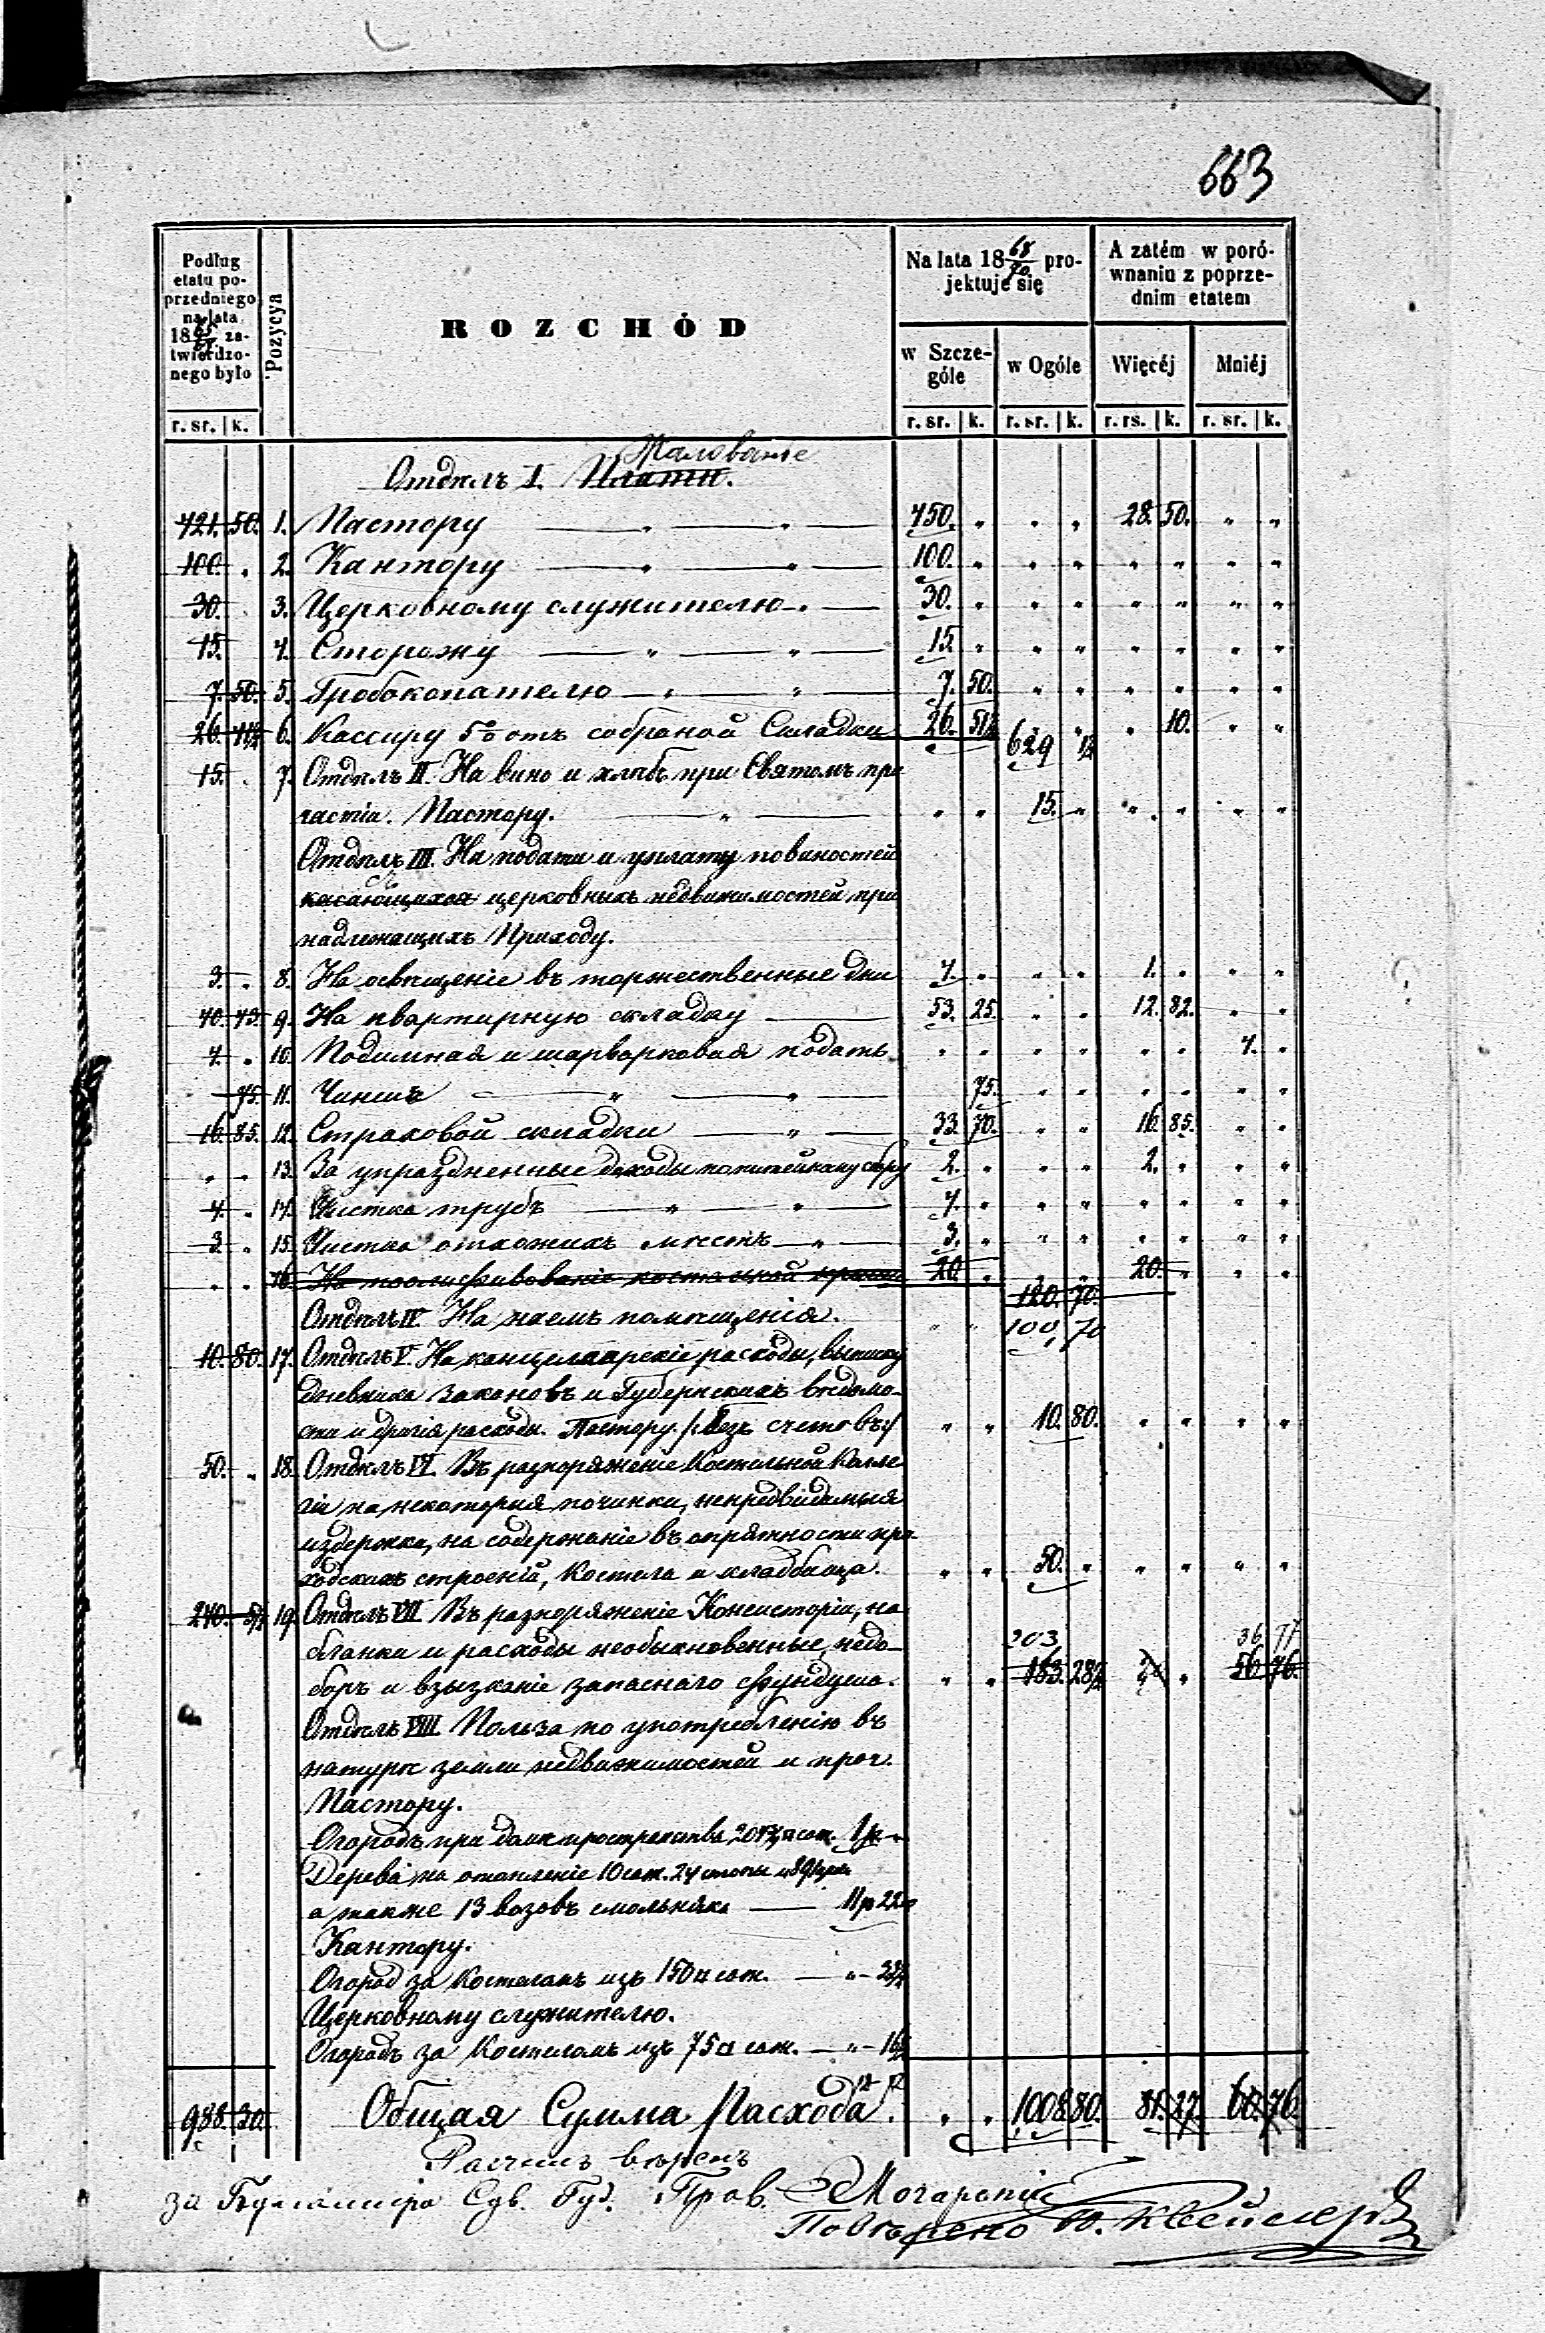 663
Podług etatu poprzedniego na lata 1865/67 zatwierdzonego było
Pozycya
ROZCHÓD
Na lata 1868/70 projektuje się
A zatém w porównaniu z poprzednim etatem
w Szczególe
w Ogóle
Więcéj
Mniéj
r. sr. k. r. sr. k. r. sr. k. r. rs. k. r. sr. k.
Жалованье
Отдѣлъ I. Платы.
421. 50. 1. Пастору 450. „ „ „ 28. 50. „ „
100. „ 2. Кантору 100. „ „ „ „ „ „ „
30. „ 3. Церковному служителю 30. „ „ „ „ „ „ „
15. 4. Сторожу 15. „ „ „ „ „ „ „
7. 50. 5. Гробокопателю 7. 50. „ „ „ „ „ „
26. 41½ 6. Кассиру 5% отъ собраной Складки 26. 51½ „ „ „ 10. „ „
629 1½
15. „ 7. Отдѣлъ II. На вино и хлѣбъ при Святомъ при
частіи. Пастору. „ „ 15. „ „ „ „ „
Отдѣлъ III. На подати и уплату повиностей
касающихся церковныхъ недвижимостей при
надлежащихъ Приходу.
3. „ 8. На освѣщеніе въ торжественные дни 4. „ „ „ 1. „ „ „
40. 43. 9. На квартирную складку 53. 25. „ „ 12. 82. „ „
4. „ 10. Подимная и шарварковая подать „ „ „ „ „ „ 4. „
75. 11. Чиншъ 75. „ „ „ „ „ „
16. 85. 12. Страховой складки 33. 70. „ „ 16. 85. „ „
„ „ 13. За упраздненные доходы по питейному сбору 2. „ „ „ 2. „ „ „
4. „ 14. Чистка трубъ 4. „ „ „ „ „ „ „
3. „ 15. Чистка отхожихъ мѣстъ 3. „ „ „ „ „ „ „
„ „ 16. На 20. „ „ „ 20. „ „ „
120. 70.
Отдѣлъ IV. На наемъ помѣщенія. „ „ 100, 70
10. 80. 17. Отдѣлъ V. На канцелларскіе расходы, выписку
Дневника законовъ и Губернскихъ вѣдомо-
сти и другія расходы. Пастору. /: Безъ счетовъ :/ „ „ 10. 80. „ „ „ „
50. „ 18. Отдѣлъ VI. Въ разпоряженіе Костельной Колле
гіи на некоторыя починки, непредвидимыя
издержки, на содержаніе въ опрятности при-
ходскихъ строеній, Костела и кладбища. „ „ 50. „ „ „ „ „
240. 5½ 19. Отдѣлъ VII. Въ разпоряженіе Консисторіи, на
бланки и расходы необыкновенные, недо- 203 36 77
боръ и взысканіе запаснаго фундуша. „ „ 183. 28½ „ 56. 76.
Отдѣлъ VIII. Польза по употребленію въ
натурѣ земли недвижимостей и проч.
Пастору.
Огородъ при домѣ
Дерева на отопленіе 10 саж. 24 стопы
а также 13 возовъ смольняка 11 р 22
Кантору.
Огород за Костеломъ изъ 150 □ саж. „
Церковному служителю.
Огородъ за Костеломъ изъ 75 □ саж. „
988. 30. Общая Сумма Расхода. „ „ 1008. 80. 81. 27. 60. 76.
Расчетъ вѣренъ
за Бухгалтера Сув. Губ. Прав.
Повѣрено